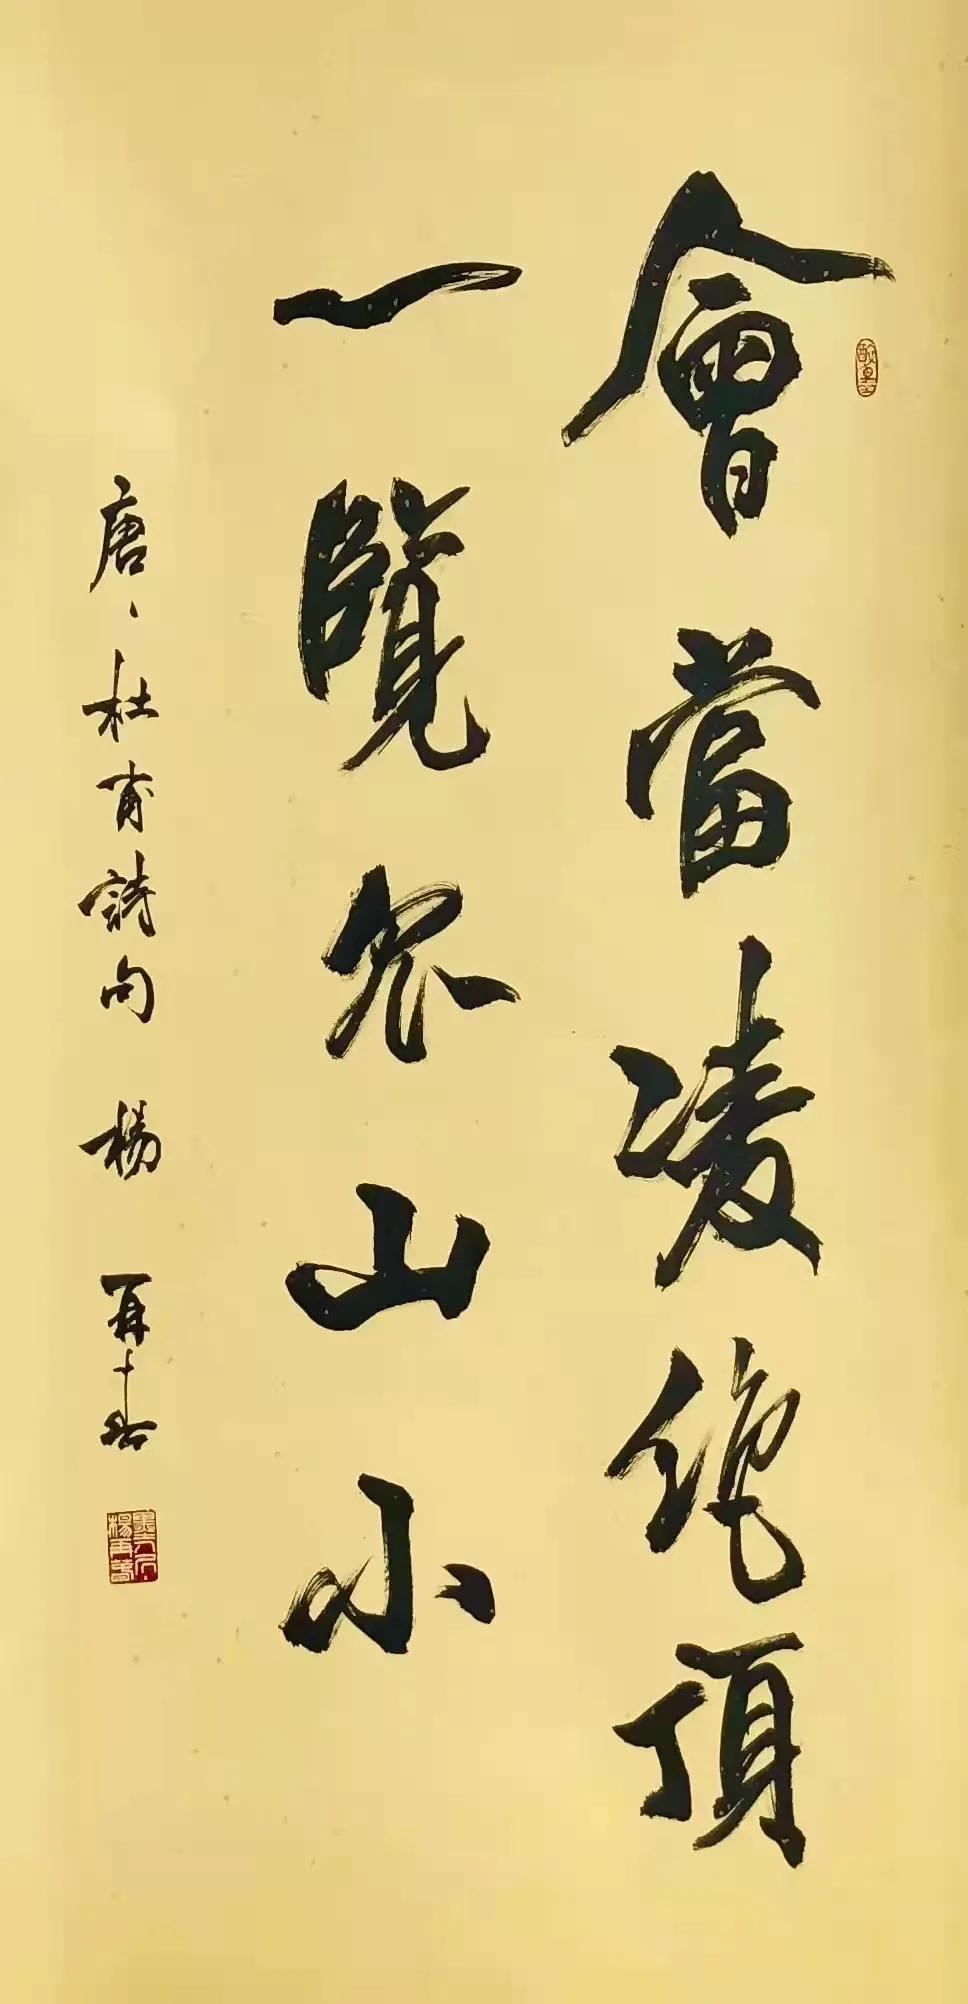 會當凌絕頂
一覽眾山小
唐、杜甫詩句 楊再春
楊再春